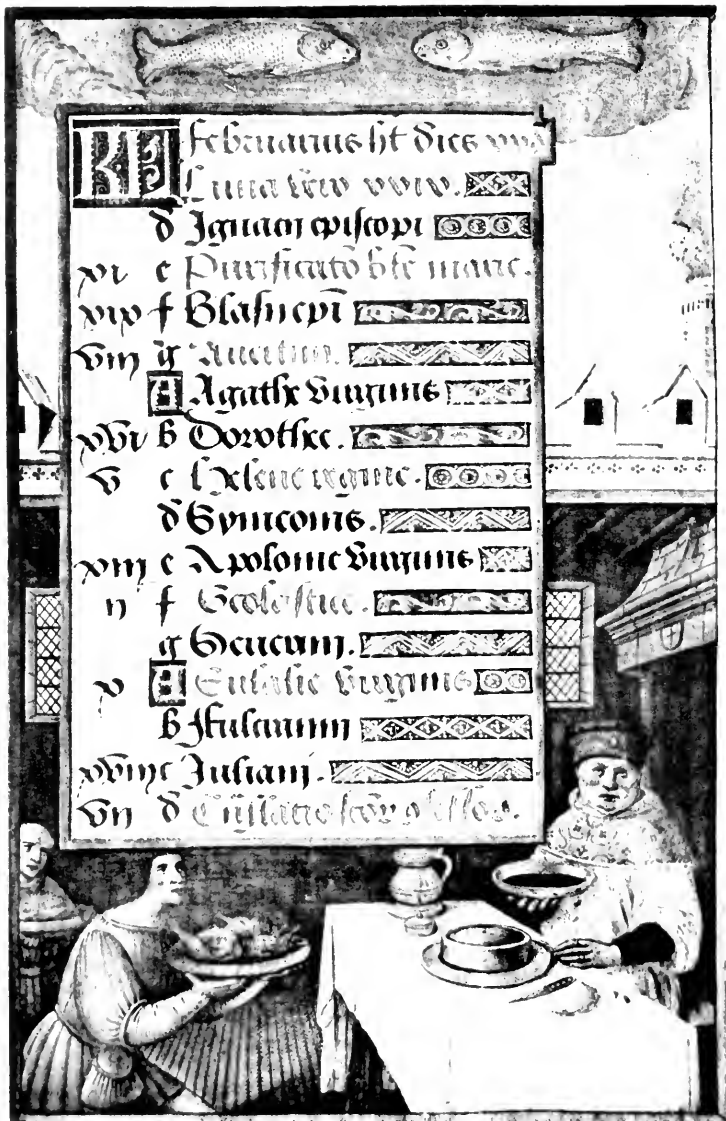 KL februarius ht dies xxviij
Luna vero xxix.
d Ignacij episcopi
xi e Purificatō bte marie.
xix f Blasij epi
viij g
A Agathe virginis
xvi b Dorothee.
v c helene regine.
d Symeonis.
xiij e Apolonie virginis
ij f Scolastice.
g Seueranj.
x A Eulalie virginis
b Fulcranni
xviij c Julianj.
vij d